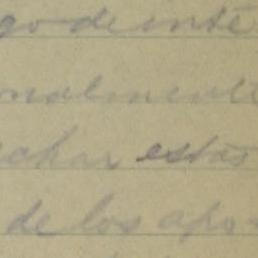 go de inte
nalmente
char estas
de los apo-